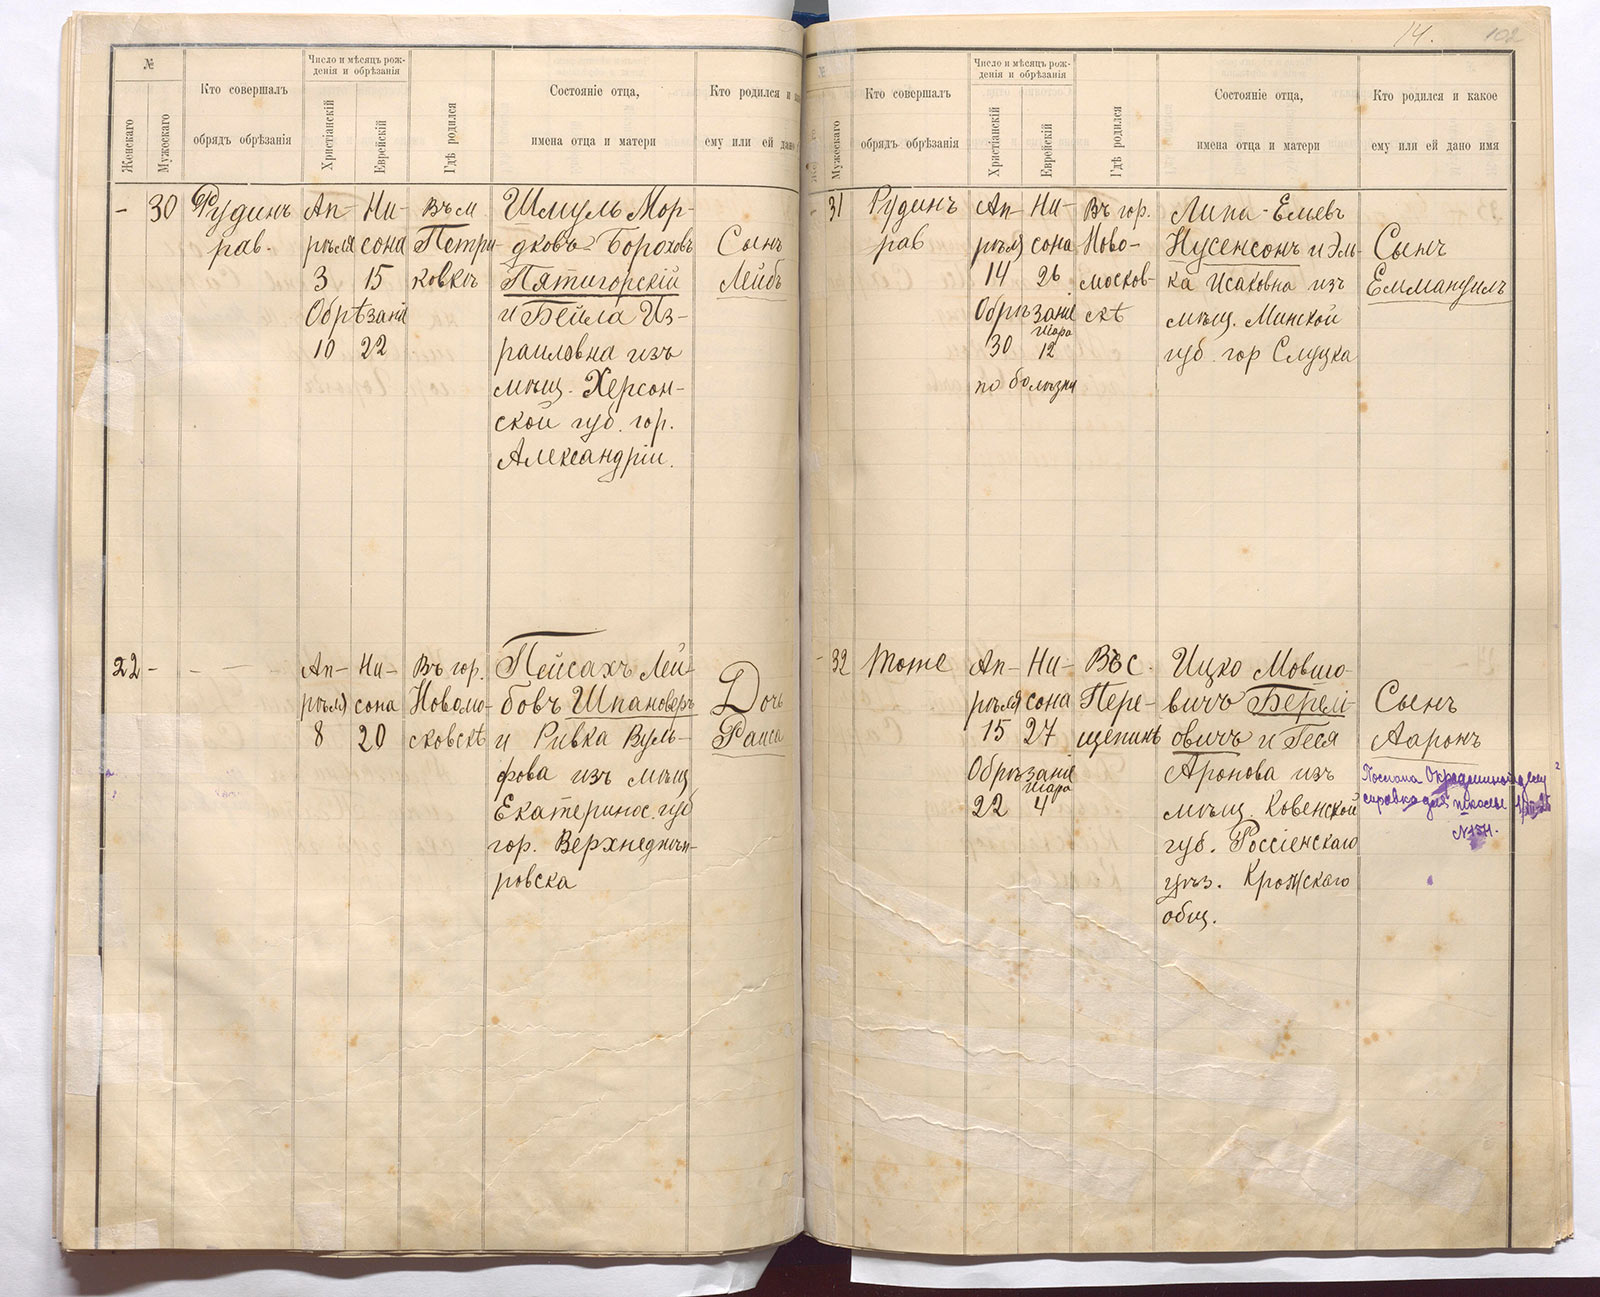 №
Женскаго
Мужескаго
Кто совершалъ
обрядъ обрѣзанія
Число и мѣсяцъ рож-
денія и обрѣзанія
Христіанскій
Еврейскій
Гдѣ родился
Состояніе отца,
имена отца и матери
Кто родился и
ему или ей дано
- 30
Рудинъ
рав.
Ап-
рѣля
3
Ни-
сона
15
Обрѣзаніе
10 22
Въ м
Петри
ковкѣ
Шмуль Мор-
дковъ-Бороховъ
Пятигорскій
и Бейла Из-
раиловна изъ
мѣщ. Херсон-
ской губ. гор.
Александріи.
Сынъ
Лейбъ
22 -
- —
Ап-
рѣля
8
Ни-
сона
20
Въ гор.
Новомо-
сковскѣ
Пейсахъ Лей-
бовъ Шпановеръ
и Ривка Вуль-
фова изъ мѣщ
Екатеринос. губ
гор. Верхнеднѣп-
ровска
Дочь
Раиса
14. 102
Мужескаго
Кто совершалъ
обрядъ обрѣзанія
Число и мѣсяцъ рож-
денія и обрѣзанія
Христіанскій
Еврейскій
Гдѣ родился
Состояніе отца,
имена отца и матери
Кто родился и какое
ему или ей дано имя
- 31
Рудинъ
рав
Ап-
рѣля
14
Ни-
сона
26
Обрѣзаніе
30
Іяра
12
по болѣзни
Въ гор.
Ново-
москов-
скѣ
Липа-Ельевъ
Нусенсонъ и Эль-
ка Исаковна изъ
мѣщ. Минской
губ. гор Слуцка
Сынъ
Еммануилъ
- 32
тоже
Ап-
рѣля
15
Ни-
сона
27
Обрѣзаніе
22
Іяра
4
Въ с.
Пере-
щепинѣ
Ицко Мовшо-
вичъ Берелі-
овичъ и Геся
Аронова изъ
мѣщ. Ковенской
губ. Россіенскаго
уѣз. Крожскаго
общ.
Сынъ
Ааронъ
Послана
справка для